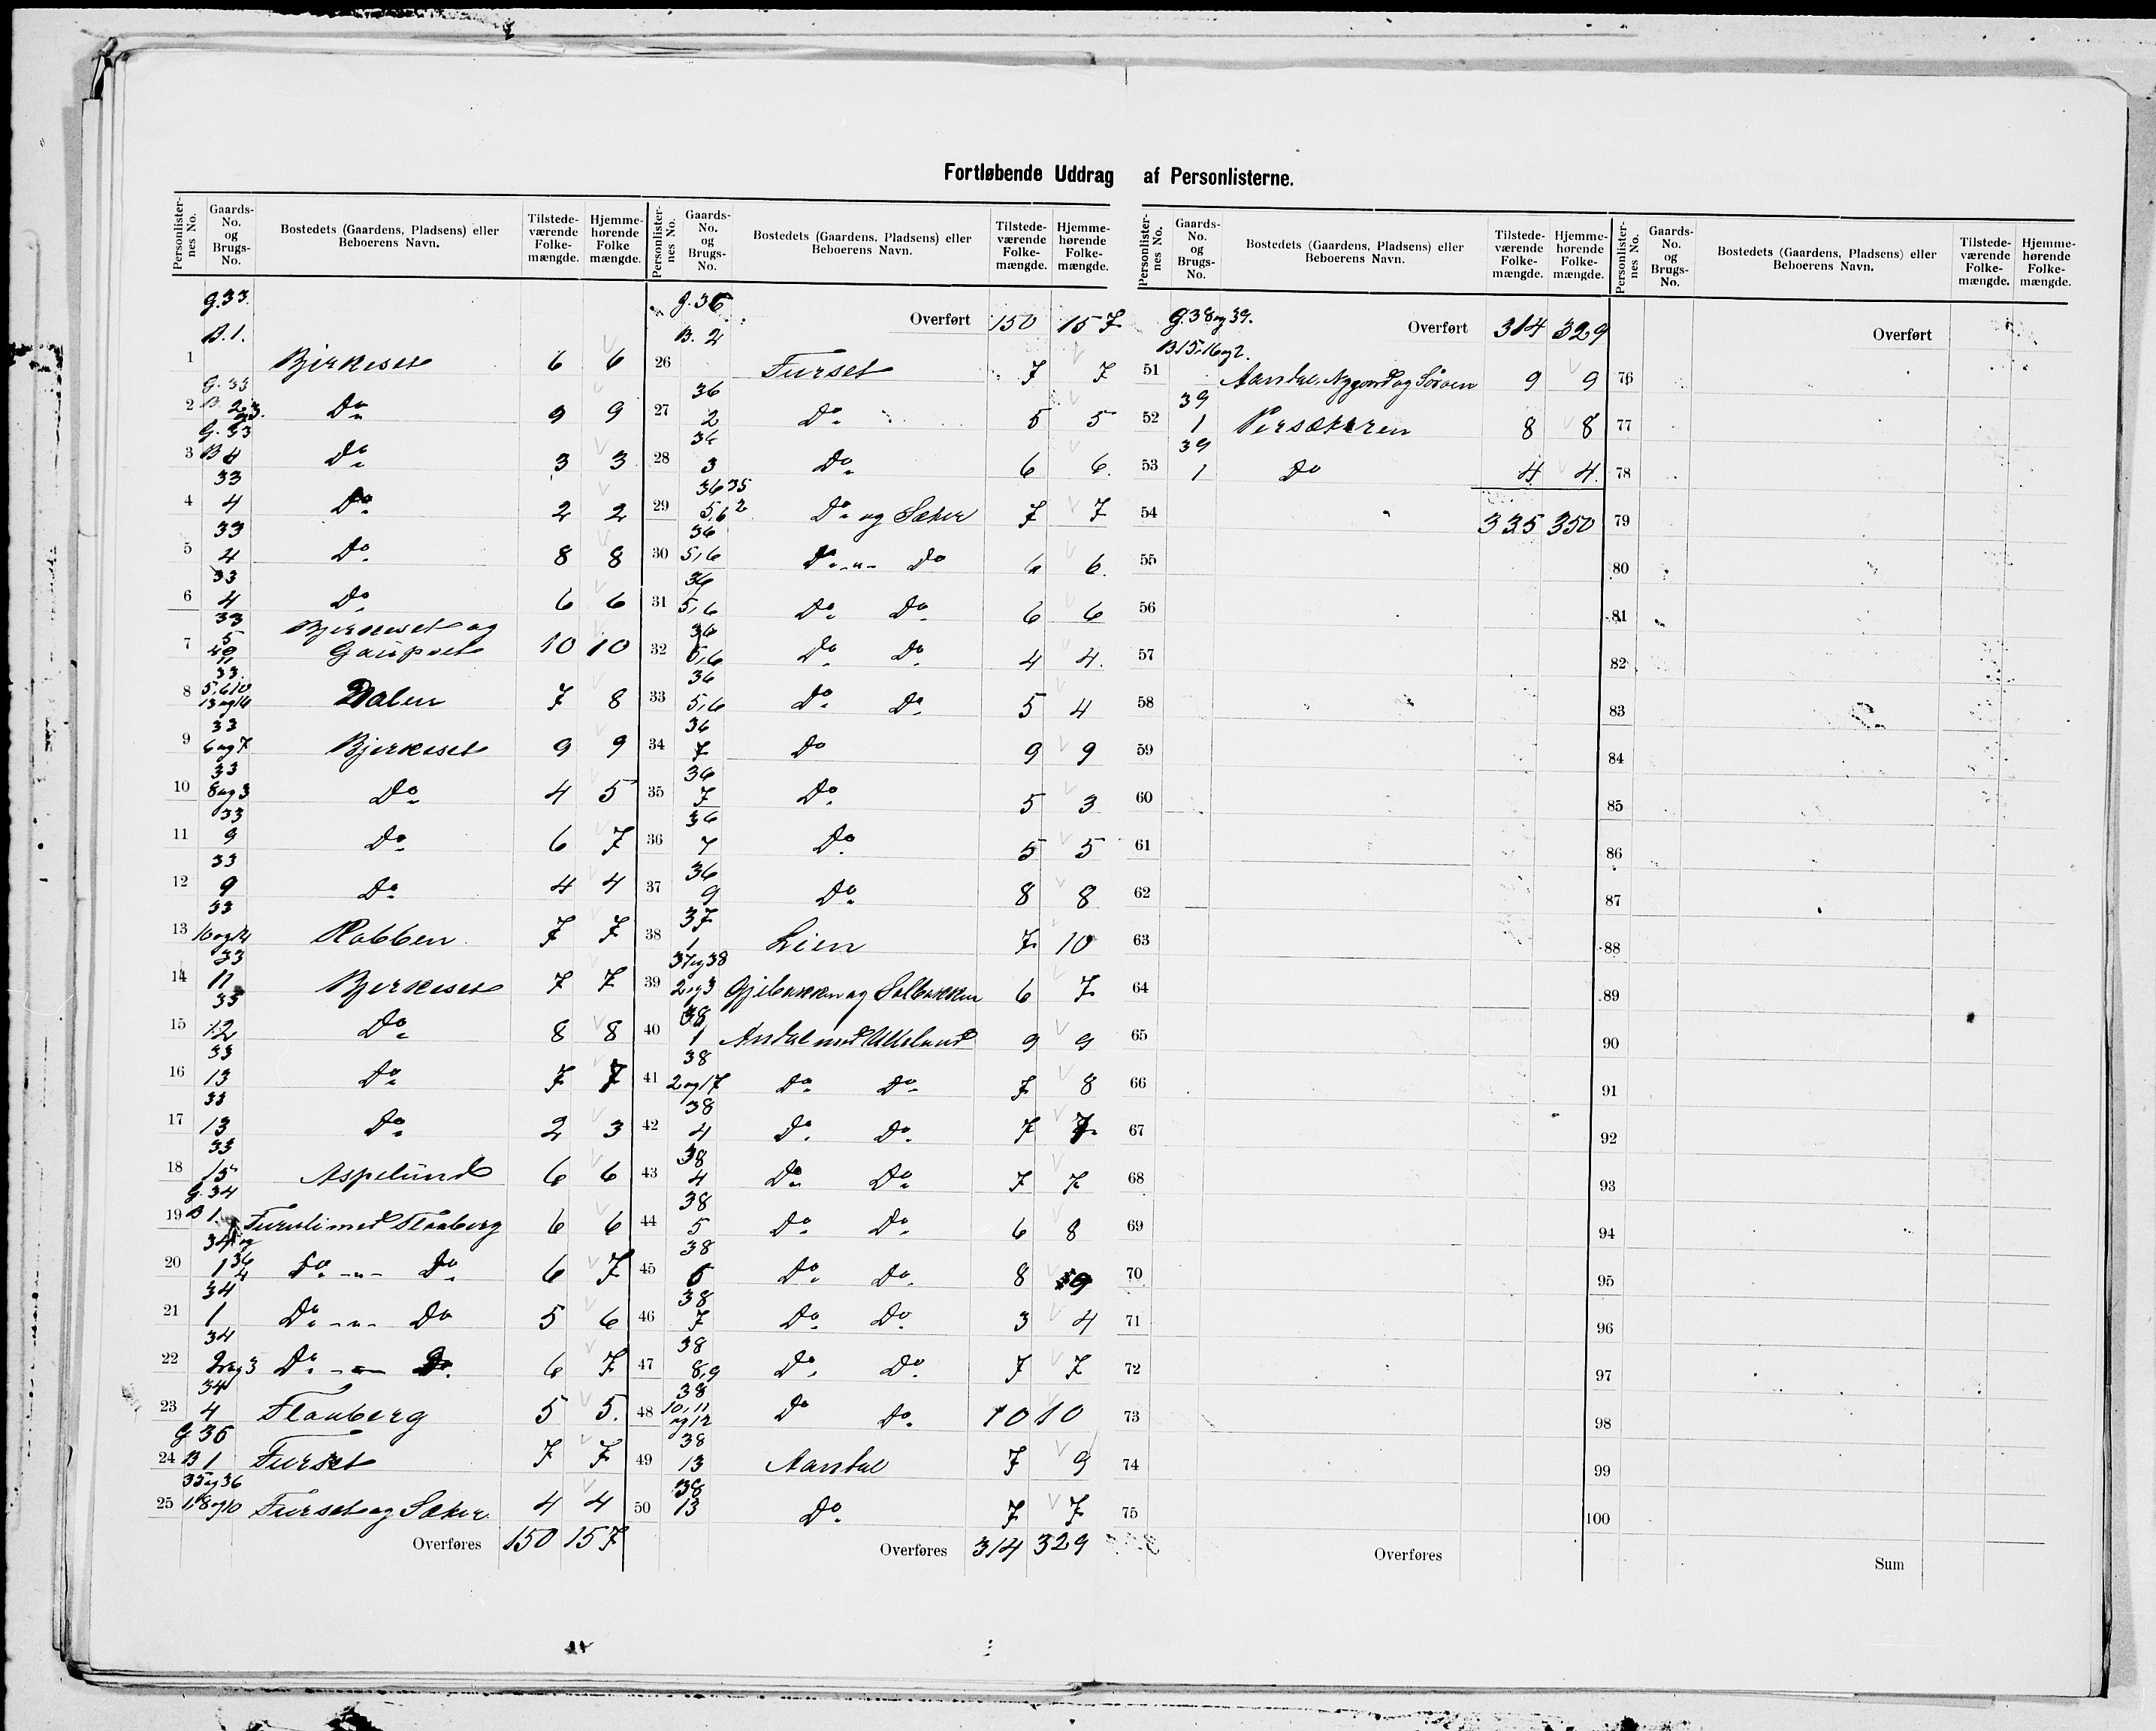 Fortløbende Uddrag af Personlisterne.
Personlister-nes No. | Gaards-No. og Brugs-No. | Bostedets (Gaardens, Pladsens) eller Beboerens Navn. | Tilstede-værende Folke-mængde. | Hjemme-hørende Folke mængde.
G. 33.
B. 1.
1 Bjerkeset 6 6
G. 33
2 B. 2 og 3. Do 9 9
G. 33
3 B 4 Do 3 3
33
4 4 Do 2 2
33
5 4 Do 8 8
33
6 4 Do 6 6
33 Bjerkeset og
7 5 Gaupset 10 10
33
8 5, 6 10 13 og 14 Dalen 7 8
33
9 6 og 7 Bjerkeset 9 9
33
10 8 og 3 Do 4 5
33
11 9 Do 6 7
33
12 9 Do 4 4
33
13 10 og 14 Kobben 7 7
33
14 11 Bjerkeset 7 7
33
15 12 Do 8 8
33
16 13 Do 7 7
33
17 13 Do 2 3
33
18 15 Aspelund 6 6
G. 34
19 B 1 Furuli med Flaaberg 6 6
34 og 36
20 1 4 Do -"- Do 6 7
34
21 1 Do -"- Do 5 6
34
22 2 og 3 Do -"- Do 6 7
34
23 4 Flaaberg 5 5.
G 35
24 B 1 Furset 7 7
35 og 36
25 1, 8 og 10 Furset og Sæter 4 4
Overføres 150 157
Personlister-nes No. | Gaards-No. og Brugs-No. | Bostedets (Gaardens, Pladsens) eller Beboerens Navn. | Tilstede-værende Folke-mængde. | Hjemme-hørende Folke-mængde.
G. 36
B. 2 Overført 150 157
26 Furset 7 7
36
27 2 Do 5 5
36
28 3 Do 6 6
36 35
29 5,6 2 Do og Sæter 7 7
36
30 5,6 Do -"- Do 6 6.
36
31 5,6 Do Do 6 6
36
32 5,6 Do Do 4 4.
36
33 5,6 Do Do 5 4
36
34 7 Do 9 9
36
35 7 Do 5 3
36
36 7 Do 5 5
36
37 9 Do 8 8
37
38 1 Lien 7 10
37 og 38
39 2 og 3 Gjibakken og Solbakken 6 7
38
40 1 Ansdal med Ulleland 9 9
38
41 2 og 17 Do Do 7 8
38
42 4 Do Do 7 7
38
43 4 Do Do 7 7
38
44 5 Do Do 6 8
38
45 6 Do Do 8 9
38
46 7 Do Do 3 4
38
47 8,9 Do Do 7 7
38
48 10, 11 og 12 Do Do 10 10
38
49 13 Aansdal 7 9
38
50 13 Do 7 7
Overføres 314 329
Personlister-nes No. | Gaards-No. og Brugs-No. | Bostedets (Gaardens, Pladsens) eller Beboerens Navn. | Tilstede-værende Folke-mængde. | Hjemme-hørende Folke-mængde.
G. 38 og 39. Overført 314 329
B 15, 16 og 2.
51 Aansdal, Nygaard og Sóroen 9 9
39
52 1 Persækeren 8 8
39
53 1 Do 4 4.
54 335 350
55
56
57
58
59
60
61
62
63
64
65
66
67
68
69
70
71
72
73
74
75
Overføres
Personlister-nes No. | Gaards-No. og Brugs-No. | Bostedets (Gaardens, Pladsens) eller Beboerens Navn. | Tilstede-værende Folke-mængde. | Hjemme-hørende Folke-mængde.
Overført
76
77
78
79
80
81
82
83
84
85
86
87
88
89
90
91
92
93
94
95
96
97
98
99
100
Sum